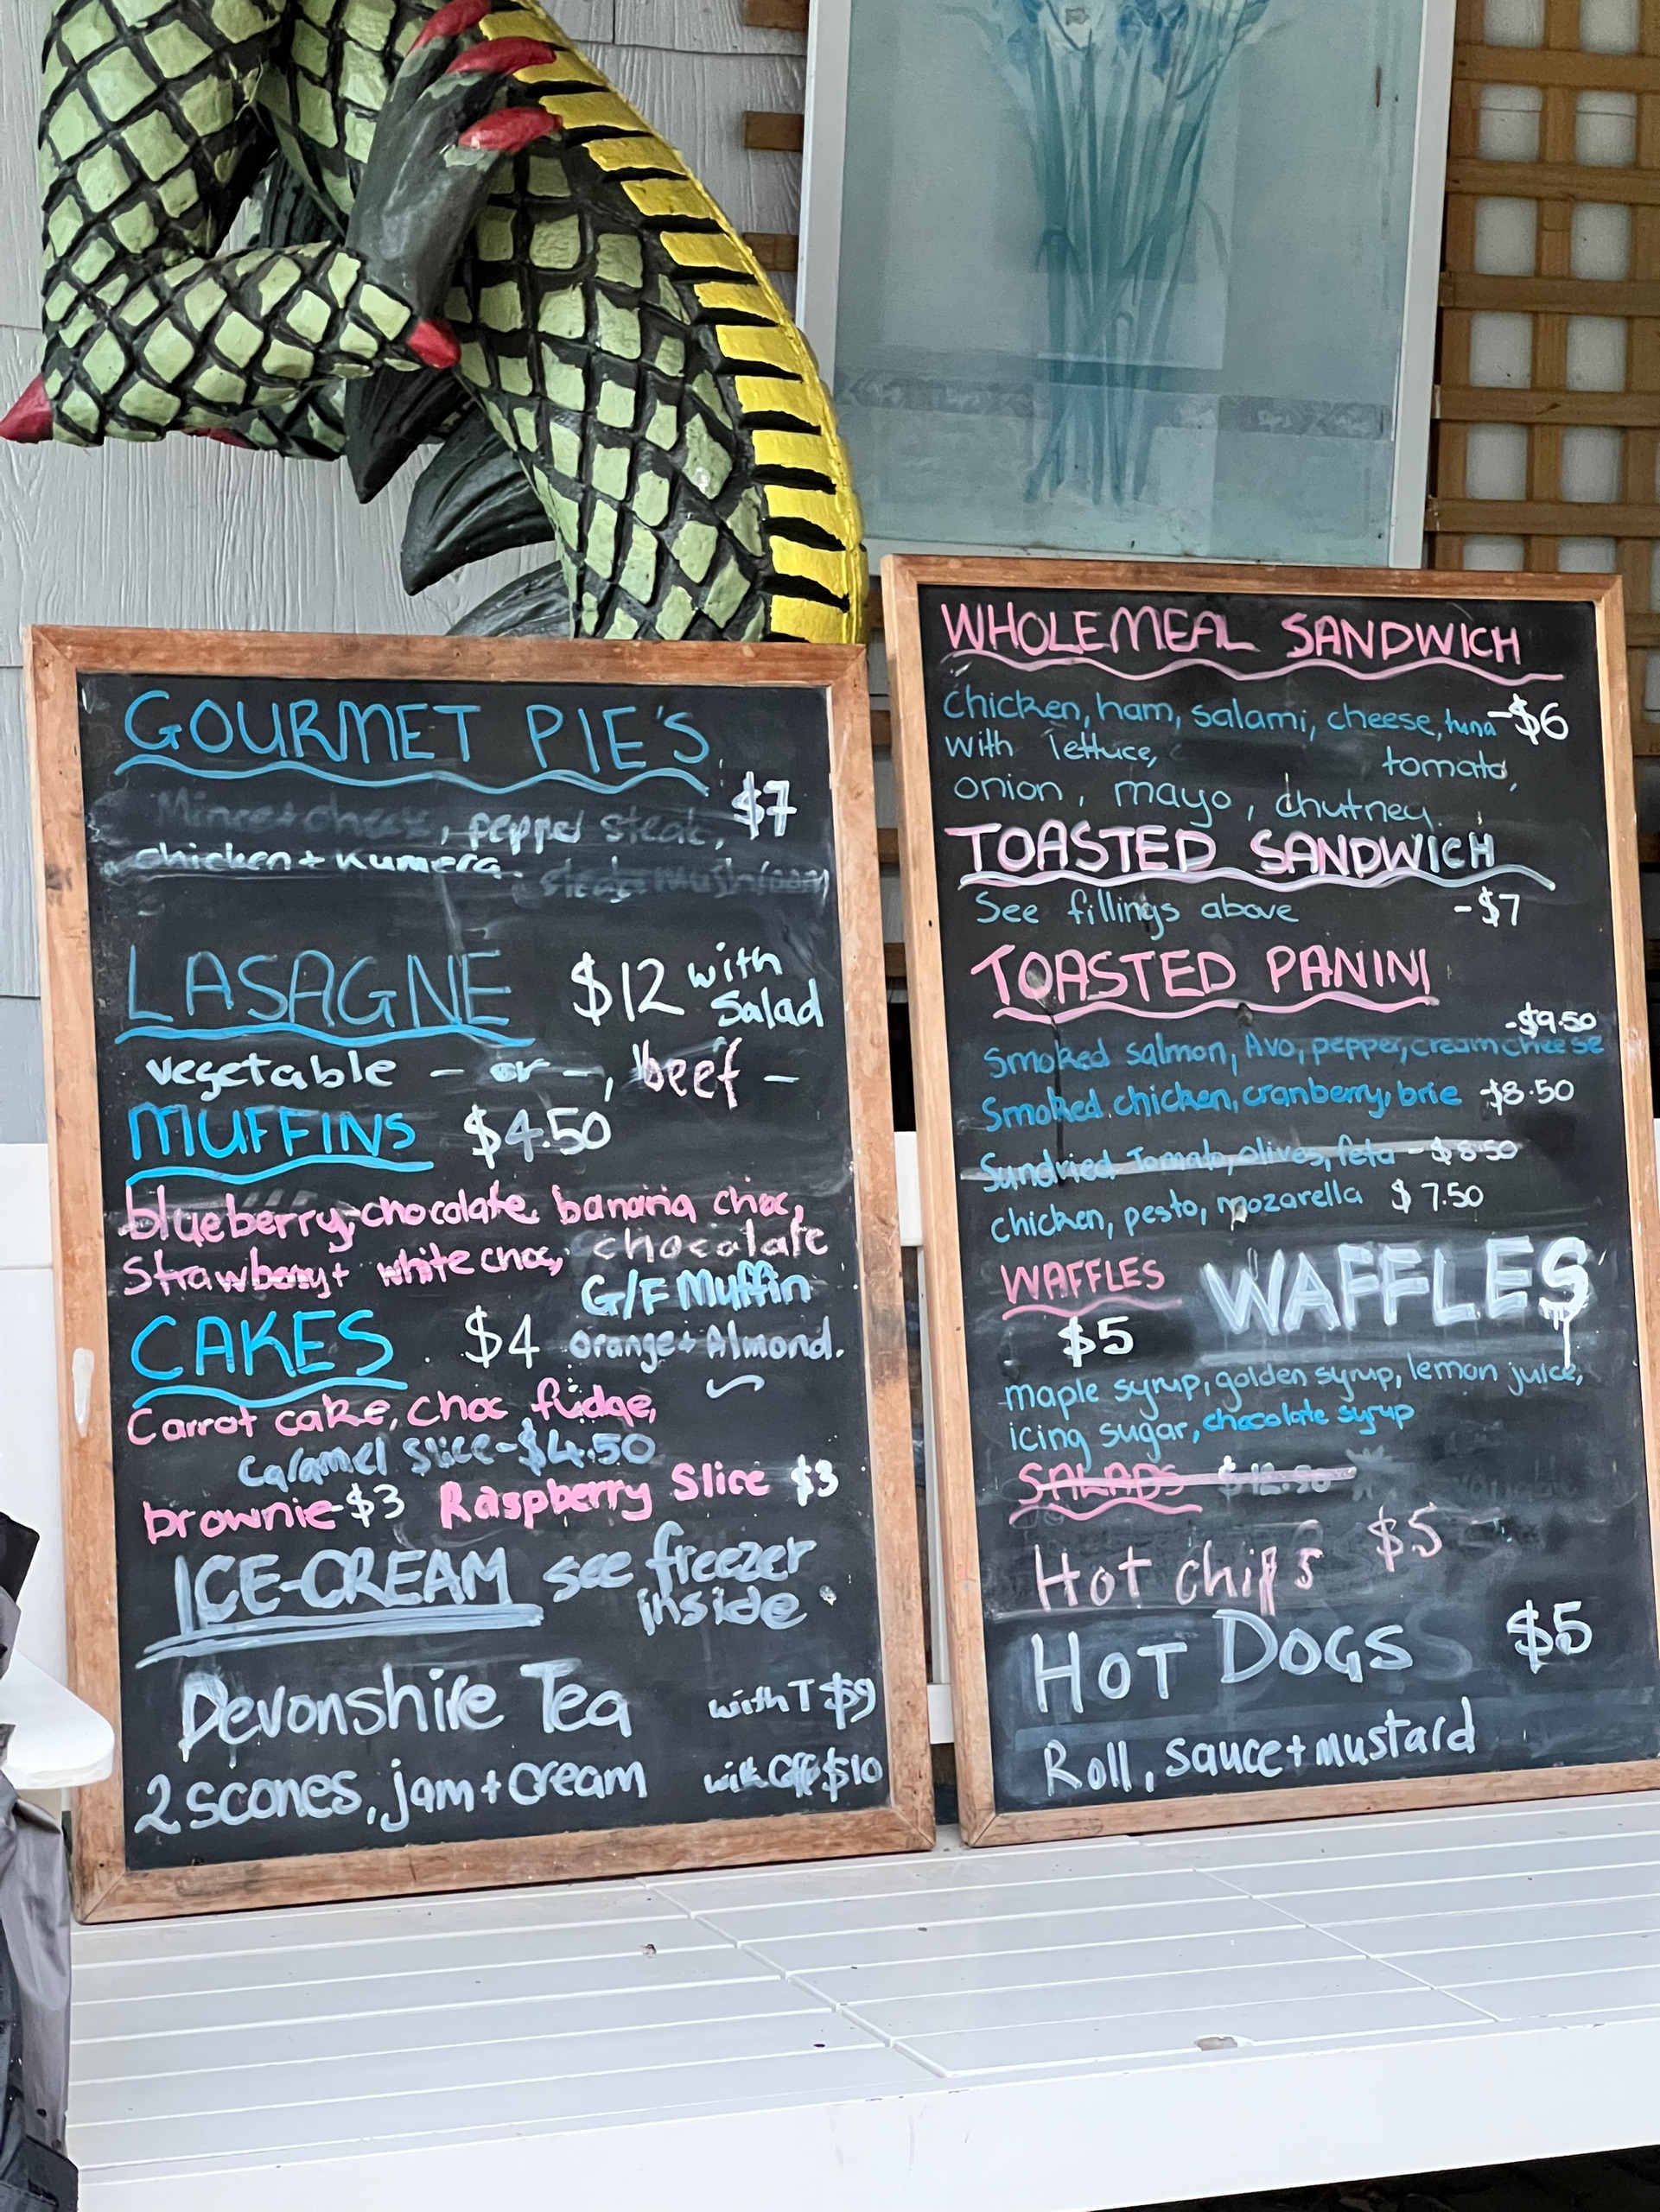 GOURMET PIE'S
Mince + cheese, pepper steak, $7
chicken + Kumera. steak + Mushroom
LASAGNE $12 with Salad
vegetable - or -, beef -
MUFFINS $4.50
blueberry, chocolate, banana choc,
Strawberry + white choc, chocolate
G/F Muffin
CAKES $4 Orange + Almond.
Carrot cake, choc fudge,
Caramel slice - $4.50
brownie - $3 Raspberry Slice $3
ICE-CREAM see freezer
inside
Devonshire Tea with T $9
2 scones, jam + cream with Coff $10
WHOLEMEAL SANDWICH
Chicken, ham, salami, cheese, tuna - $6
with lettuce, tomato,
onion, mayo, chutney.
TOASTED SANDWICH
See fillings above - $7
TOASTED PANINI
- $9.50
Smoked salmon, Avo, pepper, cream cheese
Smoked chicken, cranberry, brie - $8.50
Sundried Tomato, olives, feta - $8.50
chicken, pesto, mozarella $7.50
WAFFLES WAFFLES
$5
maple syrup, golden syrup, lemon juice,
icing sugar, chocolate syrup
SALADS $12.50
Hot chips $5
HOT DOGS $5
Roll, sauce + mustard